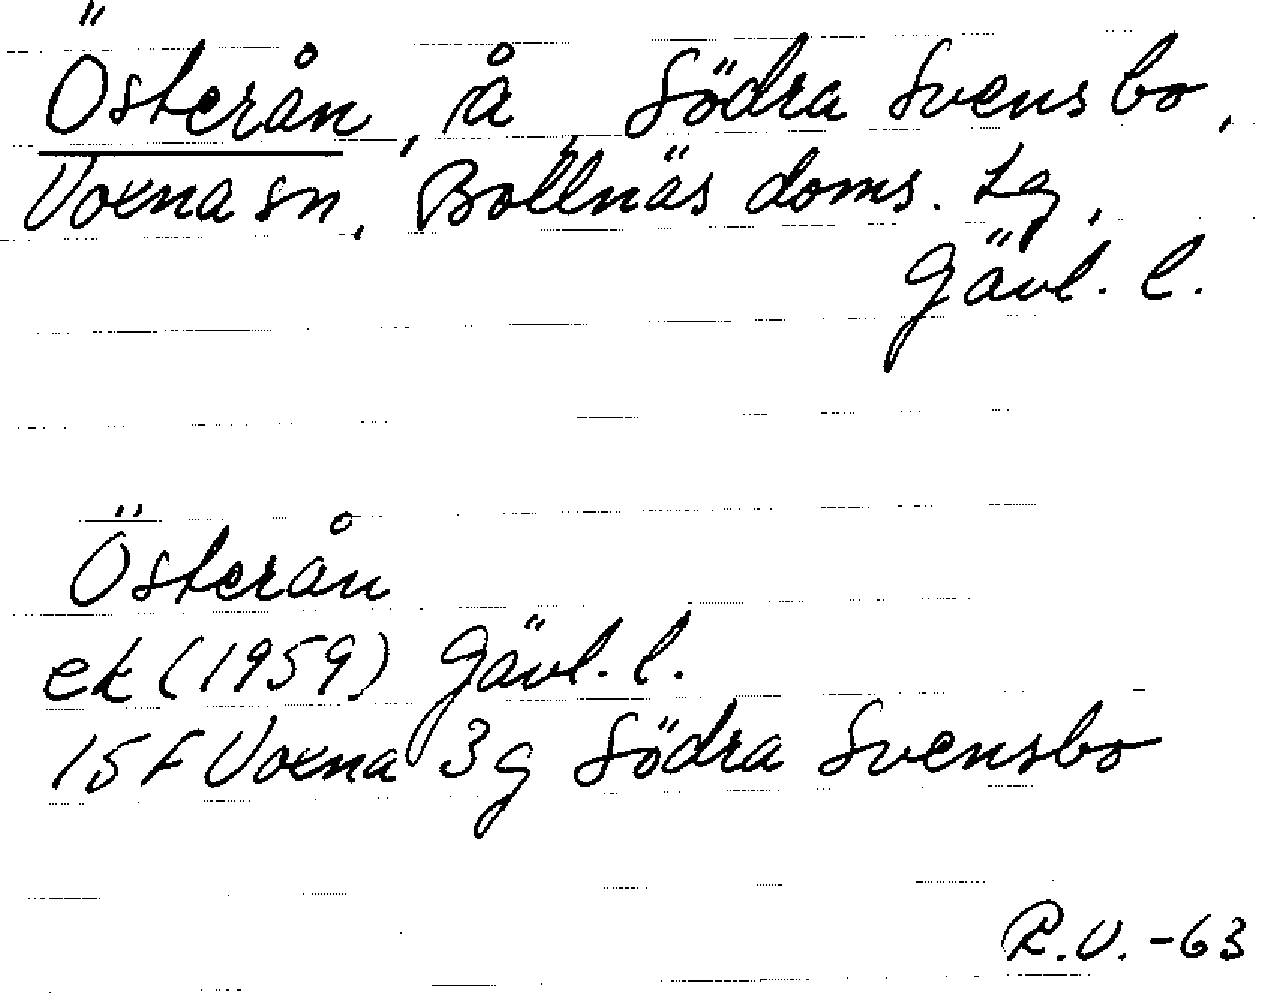 Österån, å, Södra Svensbo,
Voxna sn, Bollnäs doms. Lg,
Gävl. l.
Österån
ek (1959) Gävl. l.
15F Voxna 3g Södra Svensbo
R.V. -63